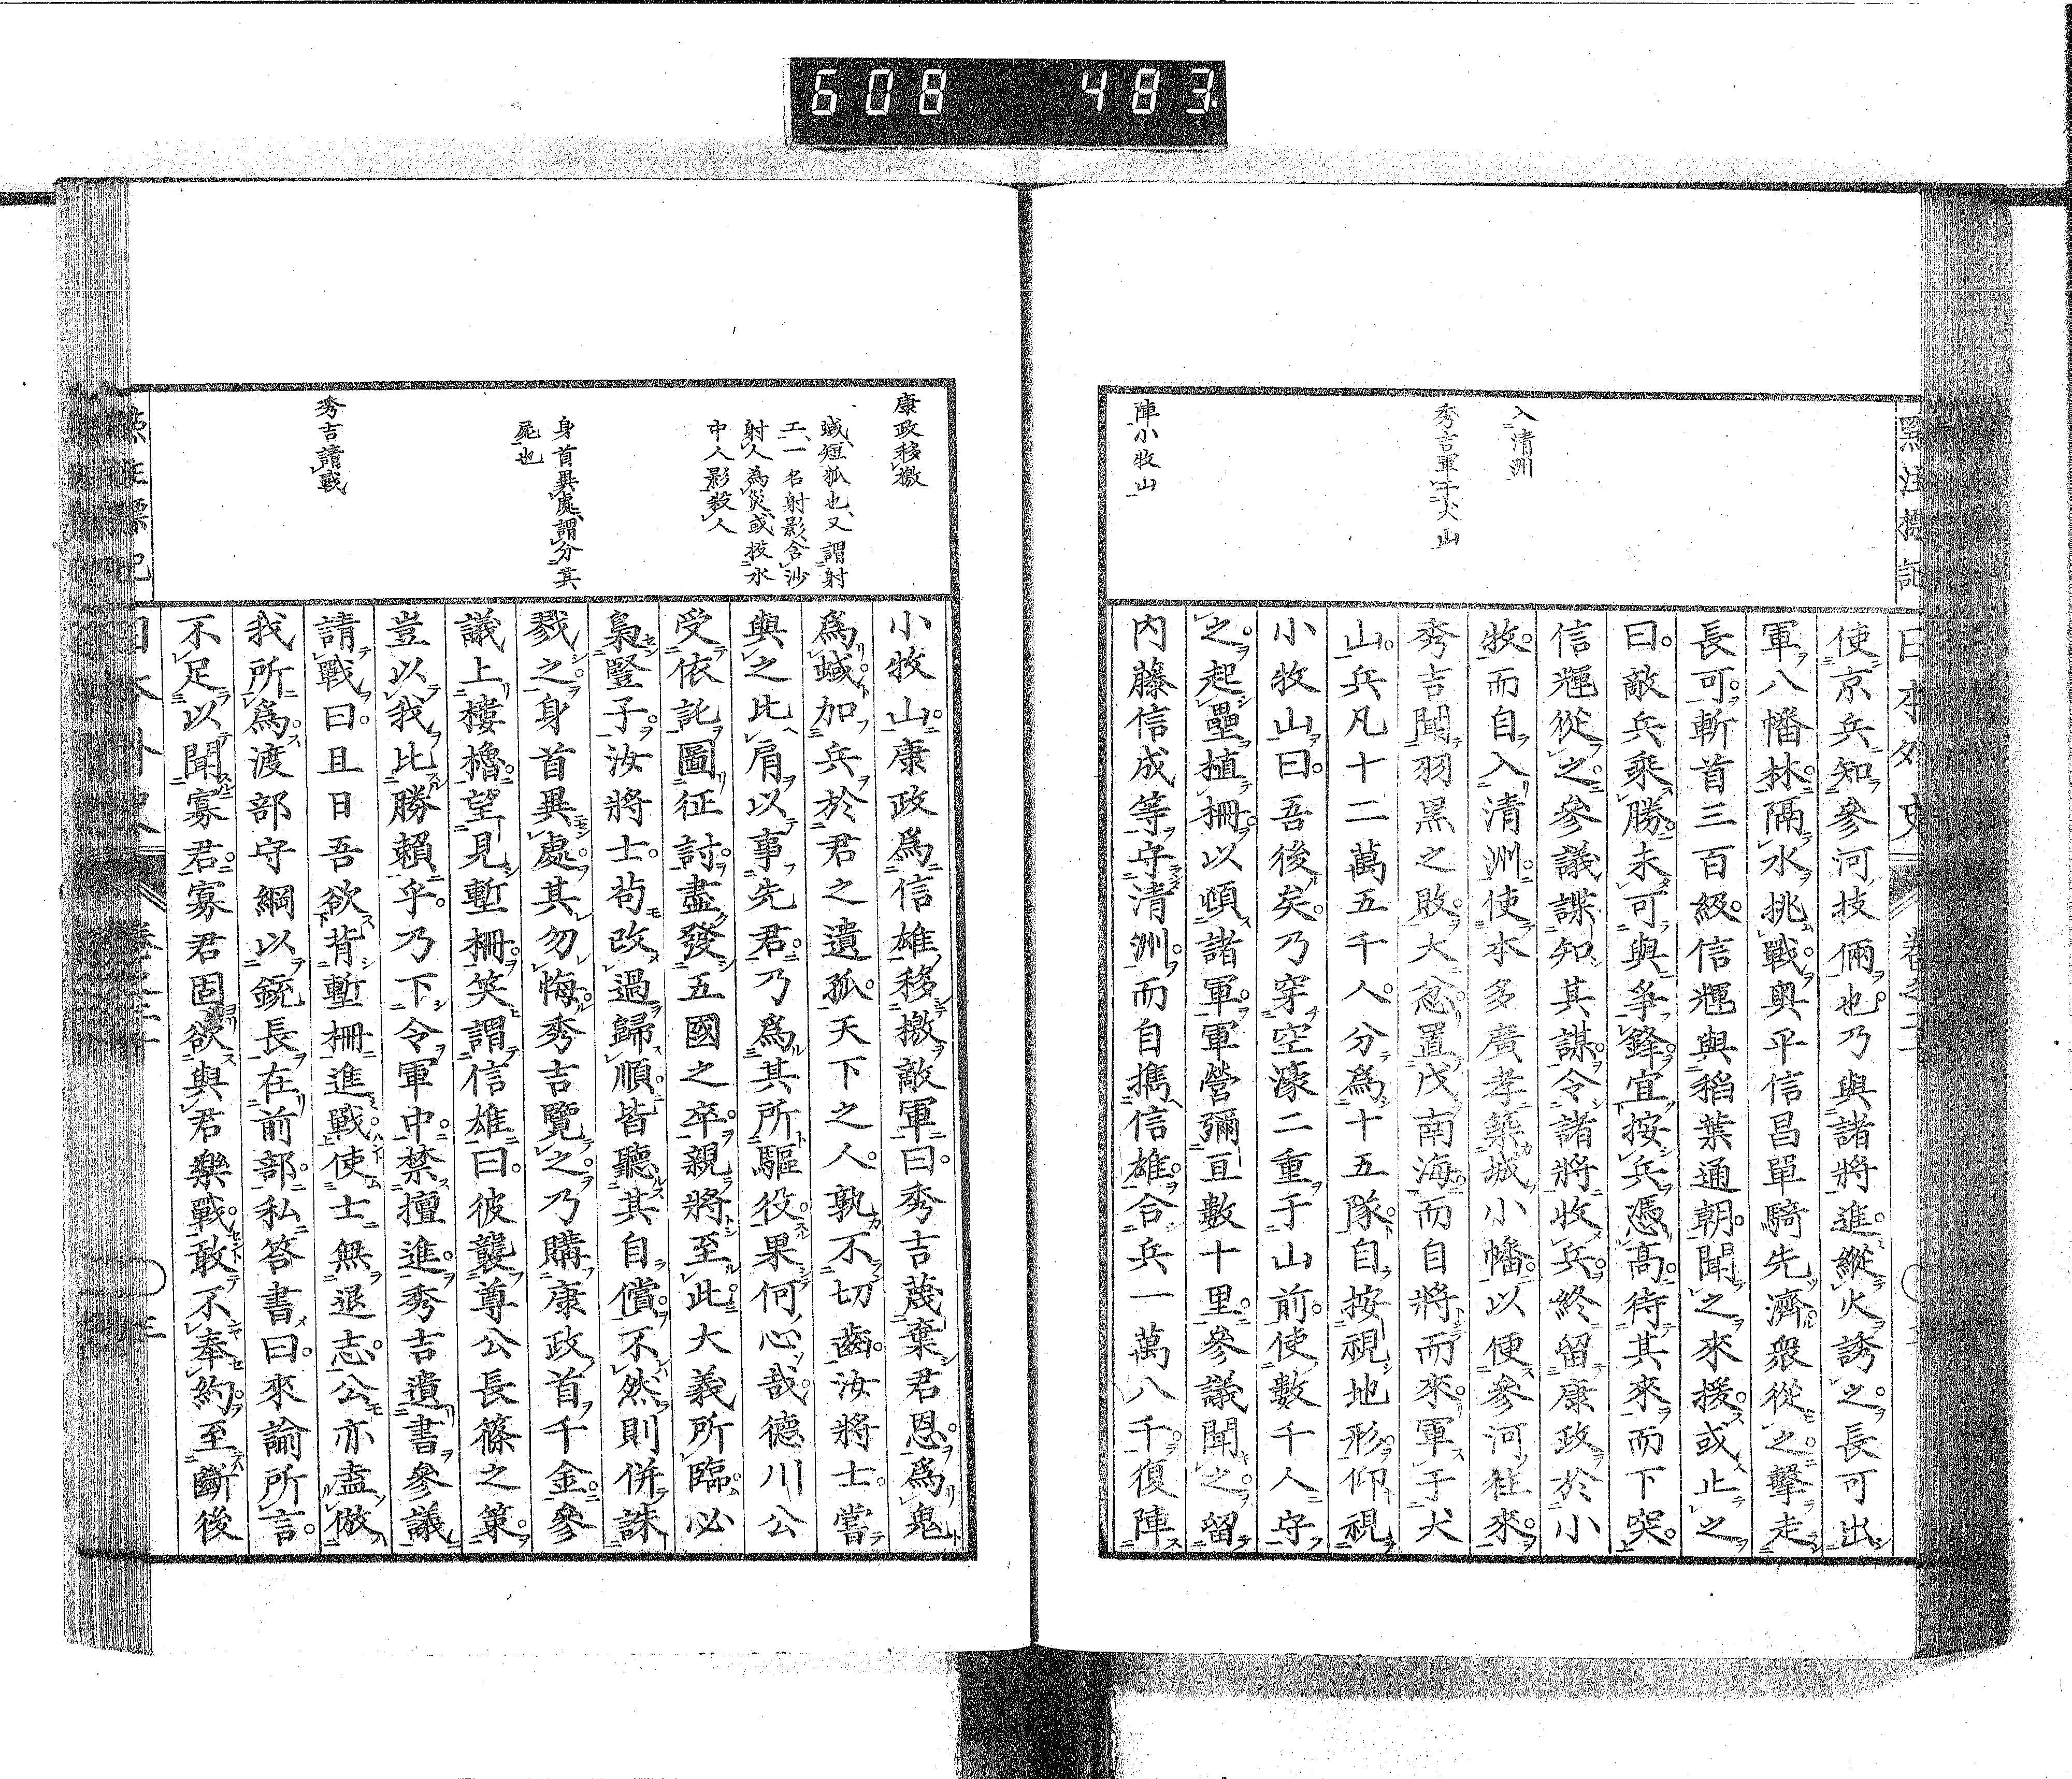 608 483
點註標記
日本外史 卷之二十
入清洲
秀吉軍于犬山
陣小牧山
使京兵知參河技倆也乃與諸將進縱火誘之長可出
軍八幡林隔水挑戰奥平信昌單騎先濟衆從之擊走
長可斬首三百級信輝與稻葉通朝聞之來援或止之
曰敵兵乘勝未可與爭鋒宜按兵憑高待其來而下突
信輝從之參議諜知其謀令諸將收兵終留康政於小
牧而自入清洲使本多廣孝築城小幡以便參河往來
秀吉聞羽黑之敗大忿置戍南海而自將而來軍于犬
山兵凡十二萬五千人分爲十五隊自按視地形仰視
小牧山曰吾後矣乃穿空濠二重于山前使數千人守
之起壘植柵以頓諸軍軍營彌亘數十里參議聞之留
内藤信成等守清洲而自擕信雄合兵一萬八千復陣
康政移檄
蜮短狐也又謂射
工一名射影含沙
射人爲災或投水
中人影殺人
身首異處謂分其
屍也
秀吉請戰
小牧山康政爲信雄移檄敵軍曰秀吉蔑棄君恩爲鬼
爲蜮加兵於君之遺孤天下之人孰不切齒汝將士嘗
與之比肩以事先君乃爲其所驅役果何心哉德川公
受依託圖征討盡發五國之卒親將至此大義所臨必
梟豎子汝將士苟改過歸順皆聽其自償不然則併誅
戮之身首異處其勿悔秀吉覽之乃購康政首千金參
議上樓櫓望見塹柵笑謂信雄曰彼襲尊公長篠之策
豈以我比勝賴乎乃下令軍中禁擅進秀吉遺書參議
請戰曰且日吾欲背塹柵進戰使士無退志公亦盍倣
我所爲渡部守綱以銃長在前部私答書曰來諭所言
不足以聞寡君寡君固欲與君樂戰敢不奉約至斷後